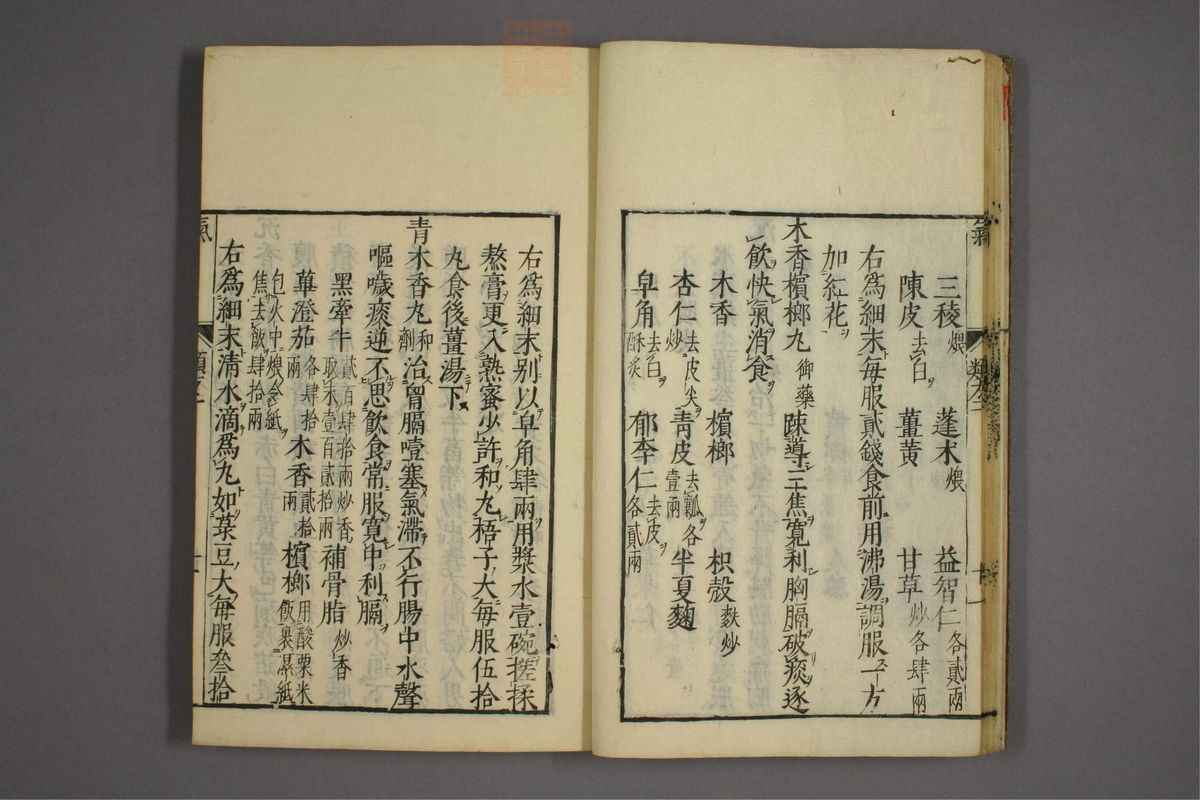 氣
三稜煨 蓬朮煨 益智仁各貳兩
陳皮去白 薑黄 甘草炒各肆兩
右爲細末每服貳錢食前用沸湯調服一方
加紅花
木香檳榔丸御藥 疎導三焦寛利胸膈破痰逐
飲快氣消食
木香 檳榔 枳殻麩炒
杏仁去皮尖炒 青皮去瓤各壹兩 半夏麴
皁角去白酥炙 郁李仁去皮各貳兩
右爲細末别以皁角肆兩用漿水壹碗搓揉
熬膏更入熟蜜少許和丸梧子大每服伍拾
丸食後薑湯下
青木香丸和劑 治胷膈噎塞氣滯不行腸中水聲
嘔噦痰逆不思飲食常服寛中利膈
黑牽牛貳百肆拾兩炒香取末壹百貳拾兩 補骨脂炒香
蓽澄茄各肆拾兩 木香貳拾兩 檳榔用酸粟米飯裹濕紙
包火中煨令紙焦去飯肆拾兩
右爲細末清水滴爲丸如菉豆大每服叄拾